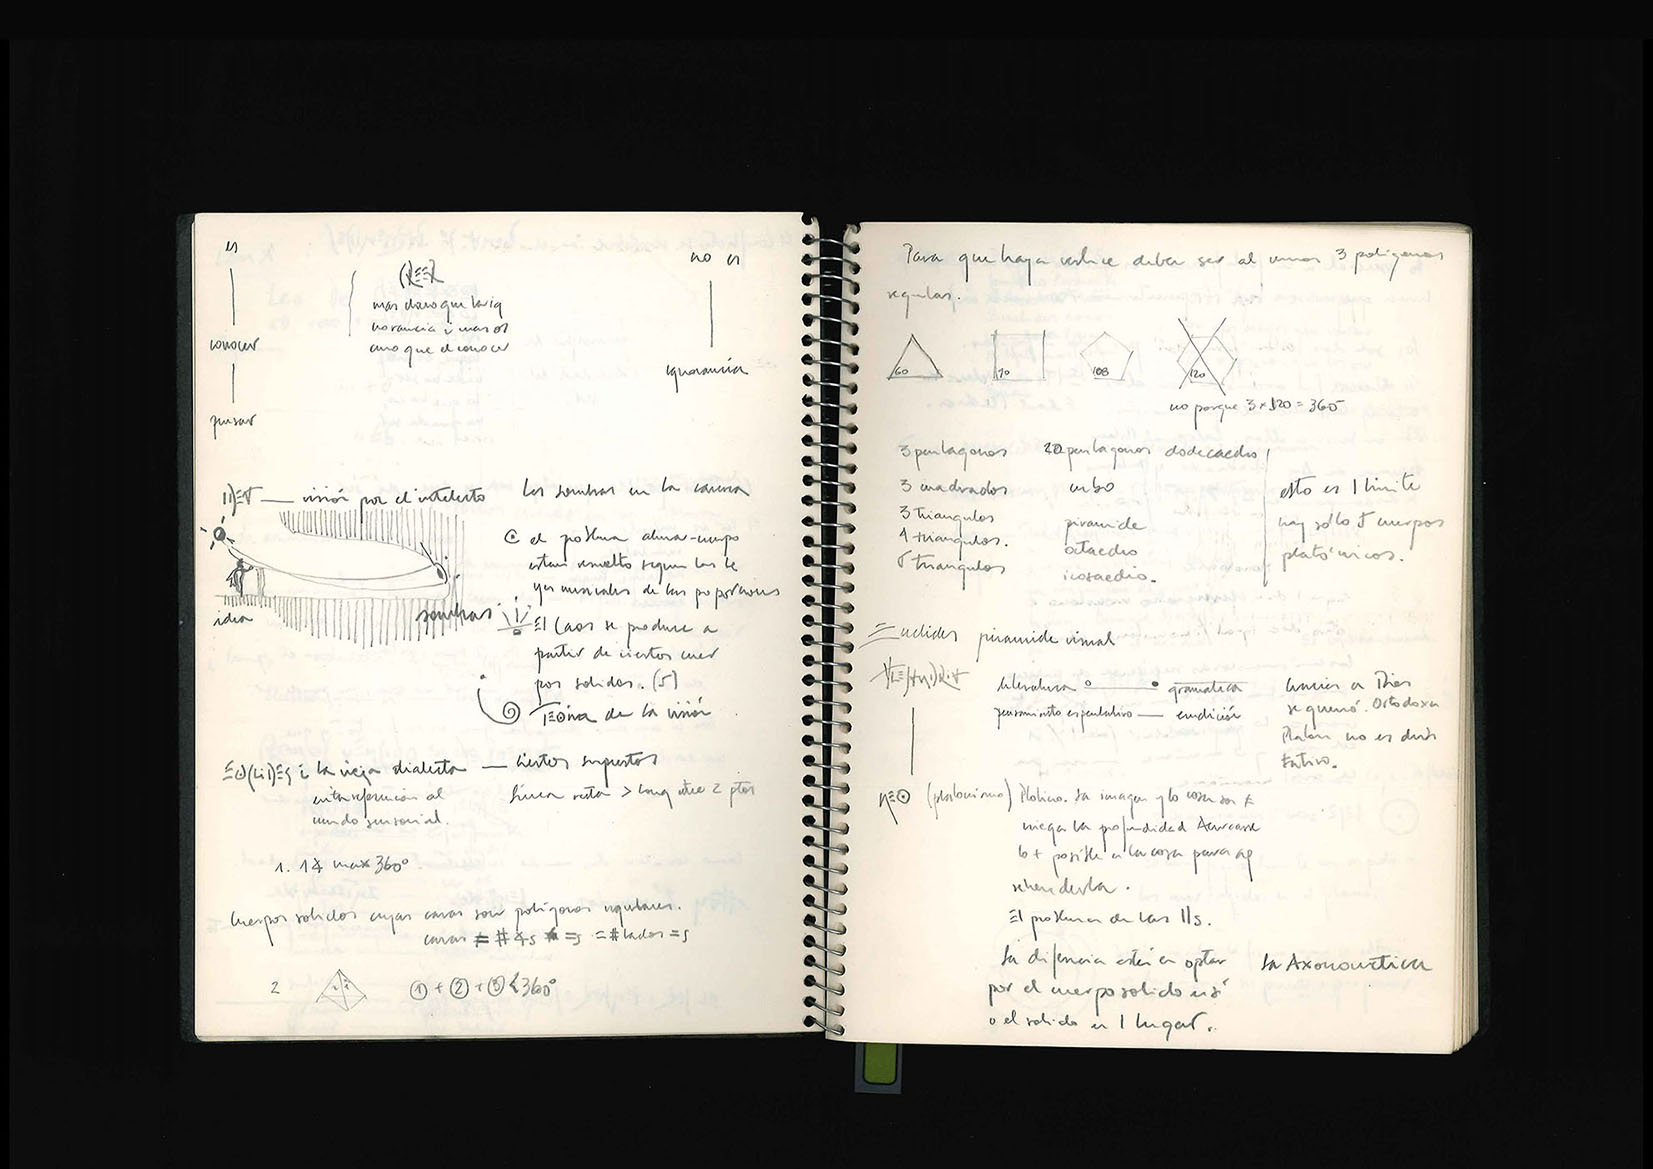 es
no es
mas claro que la ig
norancia i mas os
curo que el conocer
conocer
ignorancia
pensar
visión por el intelecto
las sombras en la caverna
el problema alma-cuerpo
estará resuelto segun las le
yes musicales de las proporciones
idea
sombras
El Caos se produce a
partir de ciertos cuer
pos solidos. (5)
Teoria de la visión
i la vieja dialecta — ciertos supuestos
sin referencia al
mundo sensorial.
linea recta > long entre 2 ptos
1. 1∡ max 360°
Cuerpos solidos cuyas caras son poligonos regulares.
caras = # ∡s = s = # lados = s
2
① + ② + ③ < 360°
Para que haya vertice deben ser al menos 3 poligonos
regulares.
60 90 108 120
no porque 3 x 120 = 360°
3 pentagonos 20 pentagonos dodecaedro
3 cuadrados cubo
3 triangulos piramide
4 triangulos. octaedro
5 triangulos icosaedro.
esto es 1 limite
hay sólo 5 cuerpos
platónicos.
Euclides piramide visual
literatura gramatica
pensamiento especulativo — erudición
Gracias a Dios
se quemó. Ortodoxia
Platon no es devo
(platonismo) Plotino. La imagen y la cosa son ≠
niega la profundidad Acercarse
lo + posible a la cosa para ap
rehenderla.
El problema de las IIs.
La diferencia está en optar
por el cuerpo solido en sí
o el solido en 1 lugar.
La Axonometrica